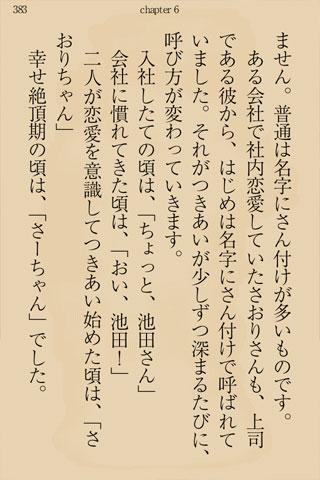 383
chapter 6
ません。普通は名字にさん付けが多いものです。
ある会社で社内恋愛していたさおりさんも、上司
である彼から、はじめは名字にさん付けで呼ばれて
いました。それがつきあいが少しずつ深まるたびに、
呼び方が変わっていきます。
入社したての頃は、「ちょっと、池田さん」
会社に慣れてきた頃は、「おい、池田！」
二人が恋愛を意識してつきあい始めた頃は、「さ
おりちゃん」
幸せ絶頂期の頃は、「さーちゃん」でした。